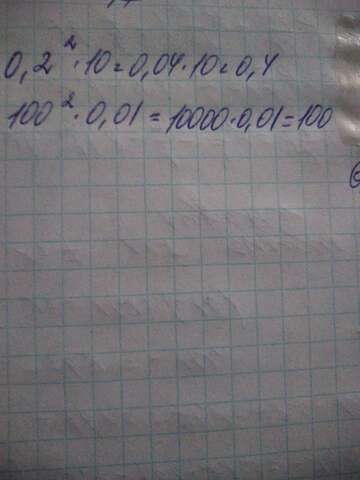 0,2²·10=0,04·10=0,4
100²·0,01=10000·0,01=100